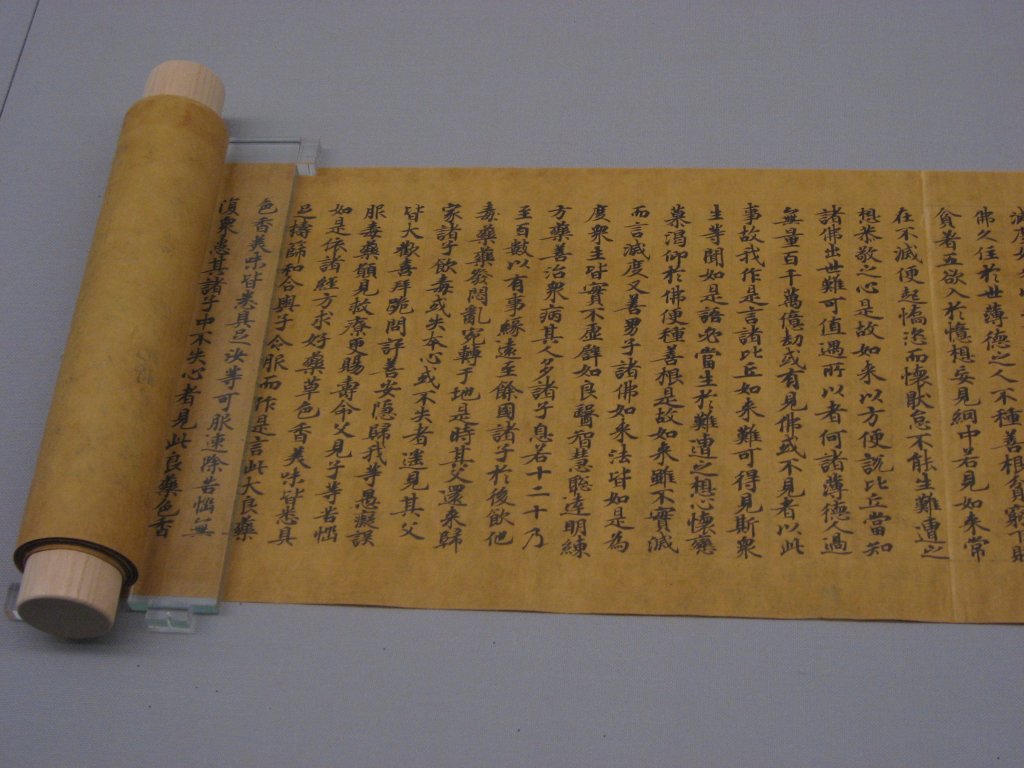 滅度如
佛久住於世薄德之人不種善根貧窮下賤
貪著五欲入於憶想妄見網中若見如来常
在不滅便起憍恣而懷猒怠不能生難遭之
想恭敬之心是故如来以方便說比丘當知
諸佛出世難可值遇所以者何諸薄德人過
無量百千萬億劫或有見佛或不見者以此
事故我作是言諸比丘如来難可得見斯衆
生等聞如是語必當生於難遭之想心懷戀
慕渴仰於佛便種善根是故如来雖不實滅
而言滅度又善男子諸佛如来法皆如是為
度衆生皆實不虛譬如良醫智慧聡達明練
方藥善治衆病其人多諸子息若十二十乃
至百數以有事緣遠至餘國諸子於後飲他
毒藥藥發悶亂宛轉于地是時其父還来歸
家諸子飲毒或失本心或不失者遙見其父
皆大歡喜拜跪問訊善安隱歸我等愚癡誤
服毒藥願見救療更賜壽命父見子等苦惱
如是依諸經方求好藥草色香美味皆悉具
足擣篩和合與子令服而作是言此大良藥
色香美味皆悉具足汝等可服速除苦惱無
復衆患其諸子中不失心者見此良藥色香